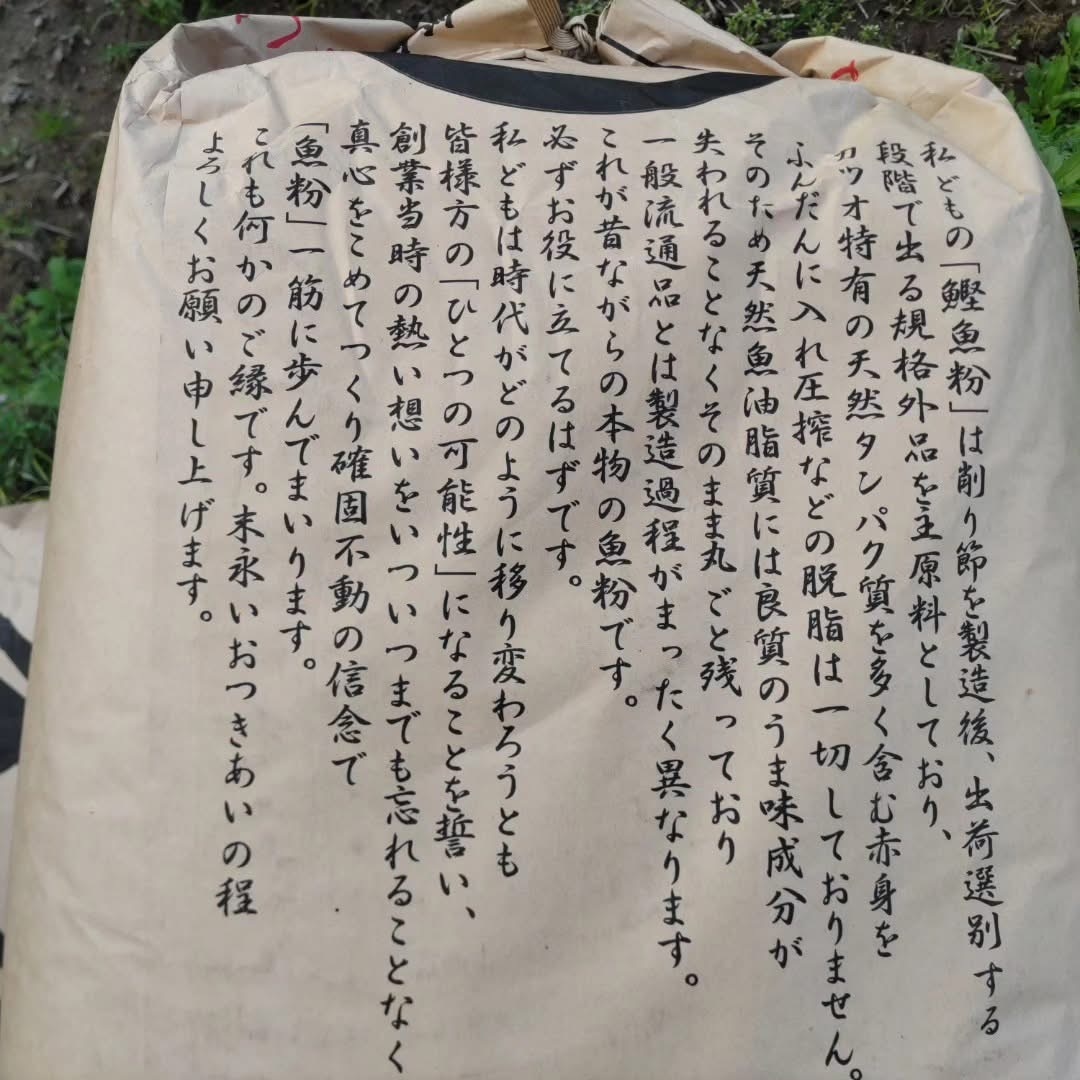 私どもの「鰹魚粉」は削り節を製造後、出荷選別する
段階で出る規格外品を主原料としており、
カツオ特有の天然タンパク質を多く含む赤身を
ふんだんに入れ圧搾などの脱脂は一切しておりません。
そのため天然魚油脂質には良質のうま味成分が
失われることなくそのまま丸ごと残っており
一般流通品とは製造過程がまったく異なります。
これが昔ながらの本物の魚粉です。
必ずお役に立てるはずです。
私どもは時代がどのように移り変わろうとも
皆様方の「ひとつの可能性」になることを誓い、
創業当時の熱い想いをいついつまでも忘れることなく
真心をこめてつくり確固不動の信念で
「魚粉」一筋に歩んでまいります。
これも何かのご縁です。末永いおつきあいの程
よろしくお願い申し上げます。